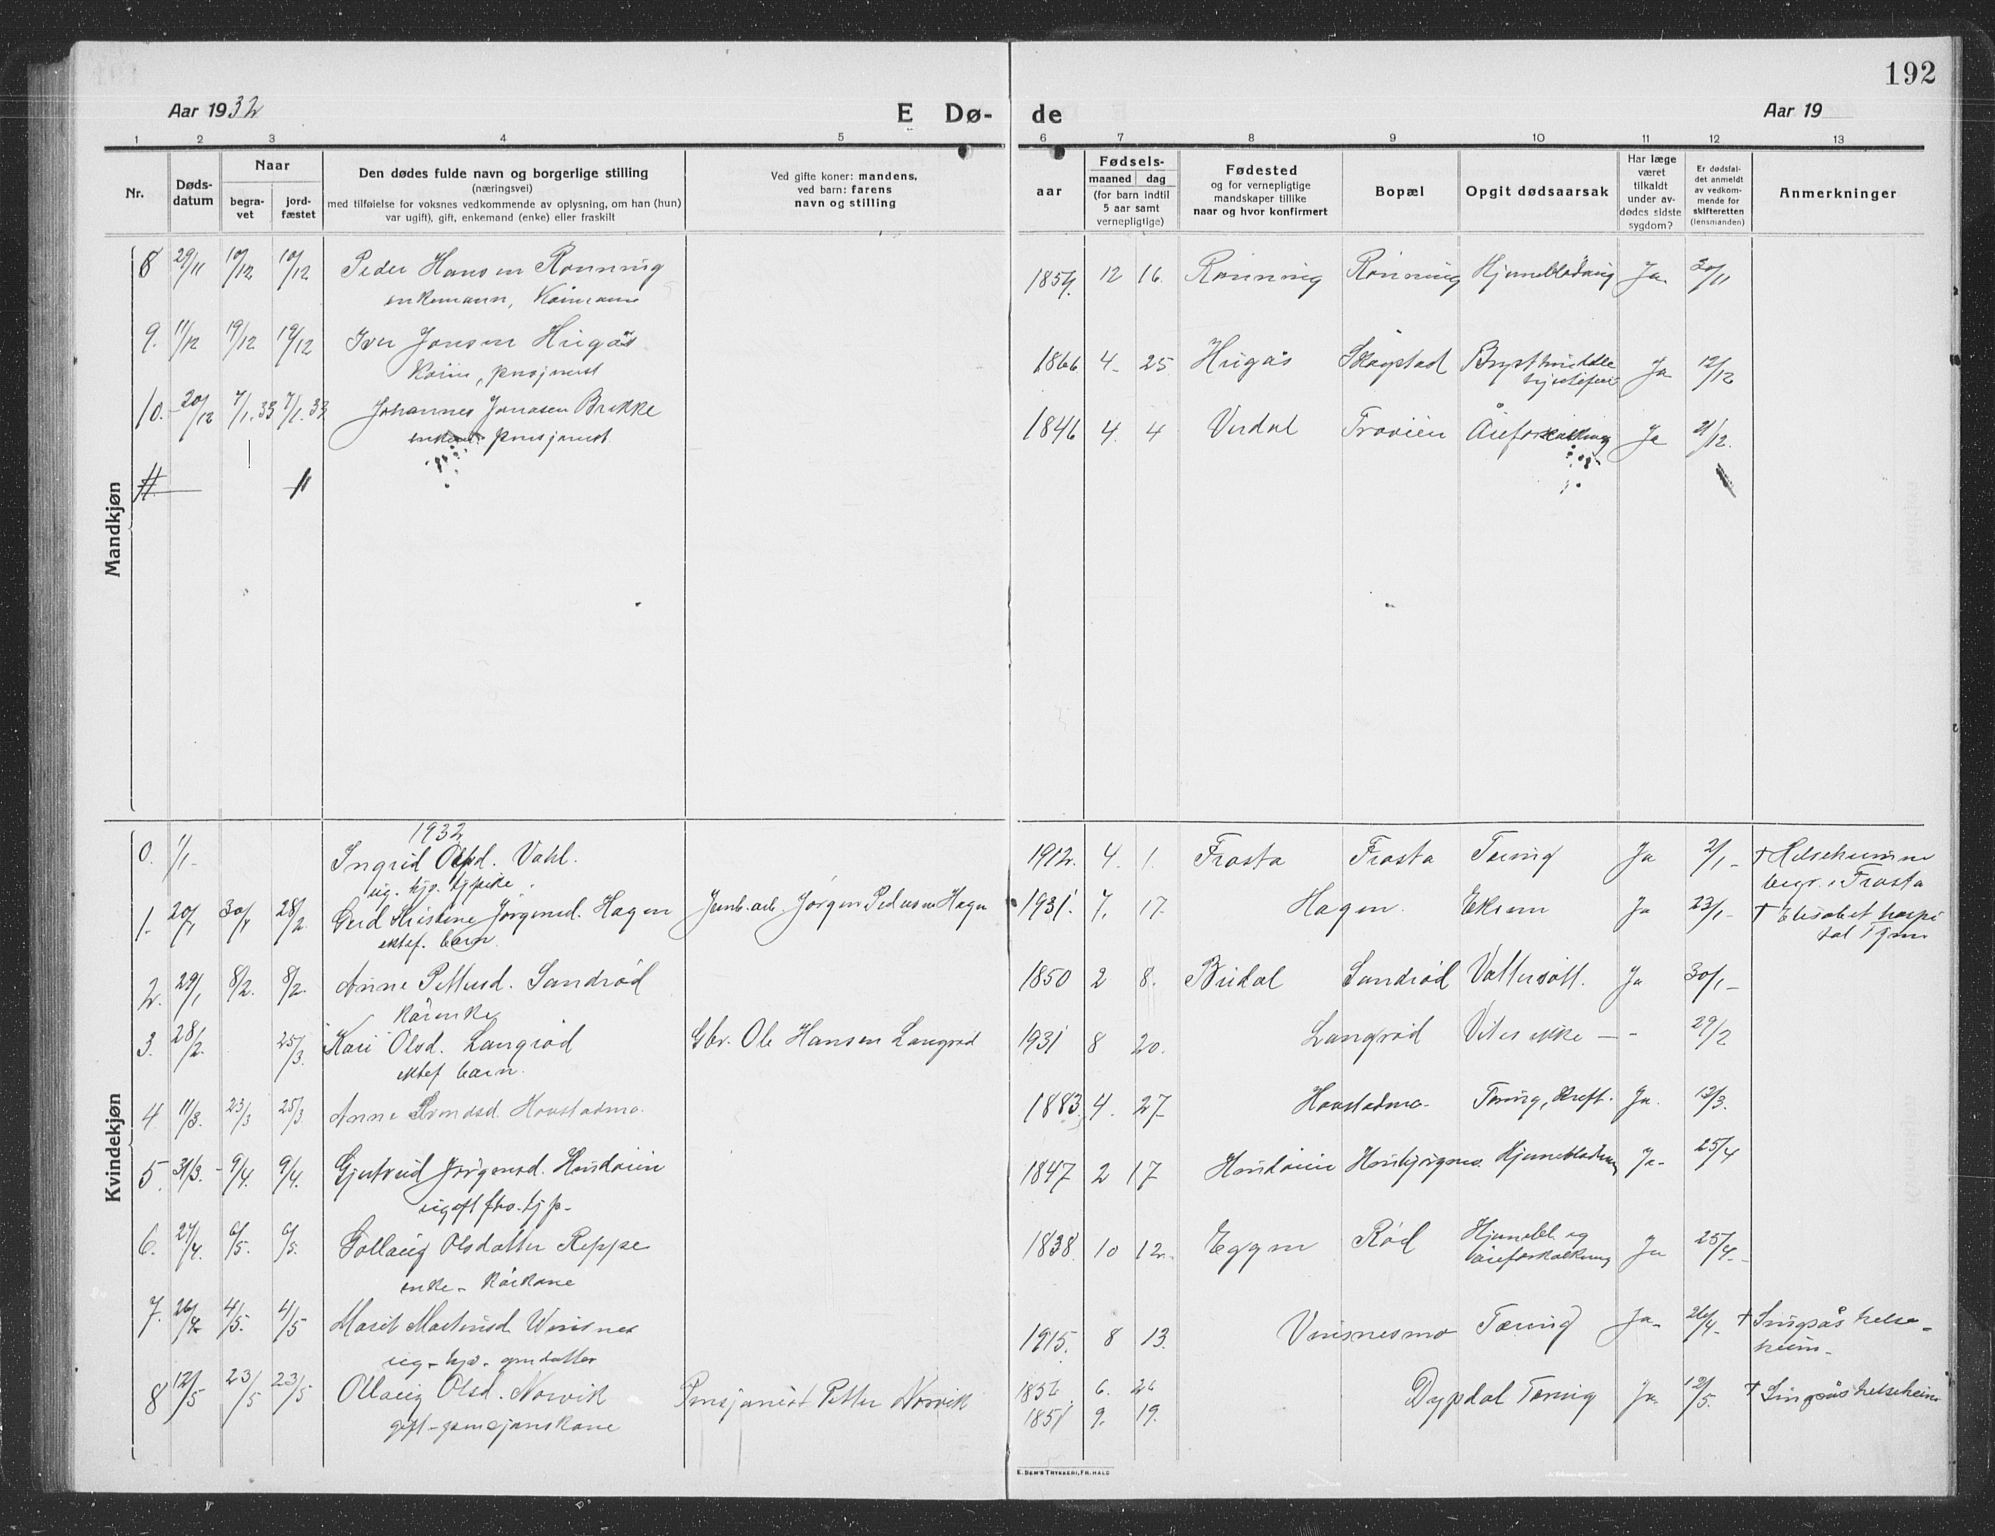 192
Aar 1932
E Dø-
de
Aar 19
1 2 3 4 5 6 7 8 9 10 11 12 13
Nr.
Døds-
datum
Naar
begra-
vet
jord-
fæstet
Den dødes fulde navn og borgerlige stilling
(næringsvei)
med tilføielse for voksnes vedkommende av oplysning, om han (hun)
var ugift), gift, enkemand (enke) eller fraskilt
Ved gifte koner: mandens,
ved barn: farens
navn og stilling
Fødsels-
aar
maaned dag
(for barn indtil
5 aar samt
vernepligtige)
Fødested
og for vernepligtige
mandskaper tillike
naar og hvor konfirmert
Bopæl
Opgit dødsaarsak
Har læge
været
tilkaldt
under av-
dødes sidste
sygdom?
Er dødsfal-
det anmeldt
av vedkom-
mende for
skifteretten
(lensmanden)
Anmerkninger
Mandkjøn
8 29/11 10/12 10/12 Peder Hansen Rønning 1854. 12 16. Rønning Rønning Hjerneblødning Ja 30/11
enkemann, Kårmann
9. 11/12 19/12 19/12 Iver Jonsen Hugås 1866 4. 25 Hugås Skogstad Ja 12/12
pensjonist
10. 20/12 7/1.33 7/1.33 Johannes Jonasen Brekke 1846 4. 4 Verdal Åreforkalkning Ja 21/12.
pensjonist
11
Kvindekjøn
1932
0. 1/1 Ingrid Olsd. Vahl. 1912. 4. 1. Frosta Frosta Tæring Ja 2/1 † Helseheimme
ug. begr. i Frosta
1. 20/1 30/1 28/2 Gerd Kristine Jørgensd. Hagen Jernb.arb. Jørgen Pedersen Hagen 1931. 7. 17. Hagen. Eksem Ja 23/1 † Elisabet hospi
ektef. barn. tal
2. 29/1 8/2. 8/2. Anne Pettersd. Sandrød 1850 2 8. Budal Sandrød Vattersott. Ja 30/1
kårenke
3. 28/2. 25/3. Kari Olsd. Langrød Gbr. Ole Hansen Langrød 1931 8 20. Langrød Vites ikke — - 29/2
ektef barn.
4. 11/3. 23/3 25/3 Anne Hovstadmo. 1883. 4. 27 Hovstadmo. Tæring, kreft. Ja. 12/3.
5. 31/3. 9/4. 9/4. Gjertrud Jørgensd. 1847 2 17 Hjerneblødning Ja. 25/4
ugift
6. 24/4. 6/5. 6/5. Gollaug Olsdatter Reppe 1838. 10 12. Eggen Rød Hjernebl. og Ja 25/4.
enke - kårkone åreforkalkning
7. 26/4 4/5. 4/5 Marit Martinsd. 1915. 8 13. Vinsnesmo Tæring Ja. 26/4. † Singsås helse-
ug. gmdatter heim.
8 12/5 23/5 23/5 Ollaug Olsd. Norvik Pensjonist Petter Norvik 1856 6. 26 Dypdal Tæring Ja. 12/5. † Singsås helseheim
gift 1851 9. 19.
E. SEM'S TRYKKERI, FR. HALD